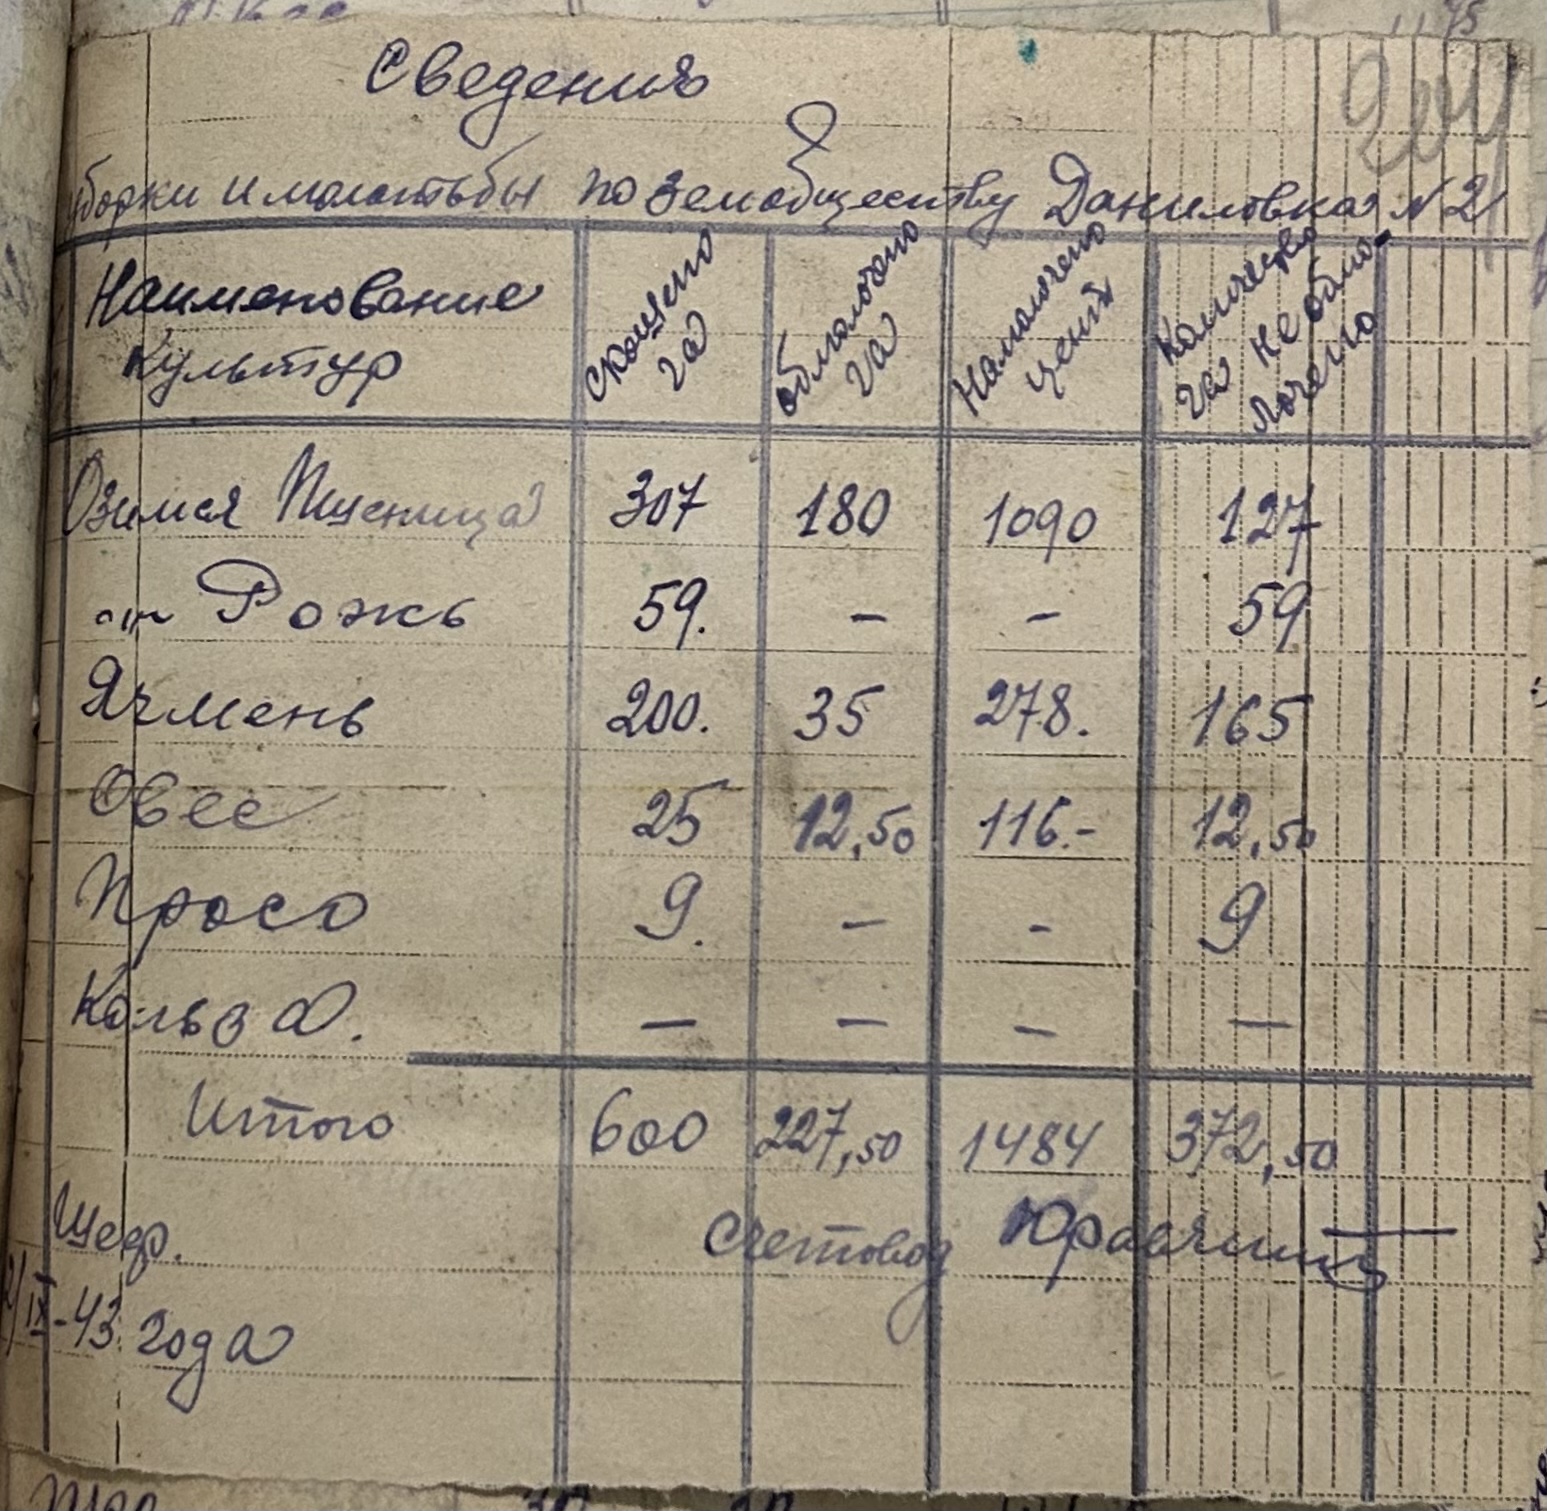 204
Сведения
уборки и молотьбы по земобществу Даниловка № 2
Наименование культур | скошено га | обмолочено га | Намолочено цент | Количество га не обмолочено
Озимая Пшеница | 307 | 180 | 1090 | 127
-"- Рожь | 59. | – | – | 59
Ячмень | 200. | 35 | 278. | 165
Овес | 25 | 12,50 | 116.- | 12,50
Просо | 9. | – | - | 9
Кольза. | – | – | – | –
Итого | 600 | 227,50 | 1484 | 372,50
счетовод
IX-43 года